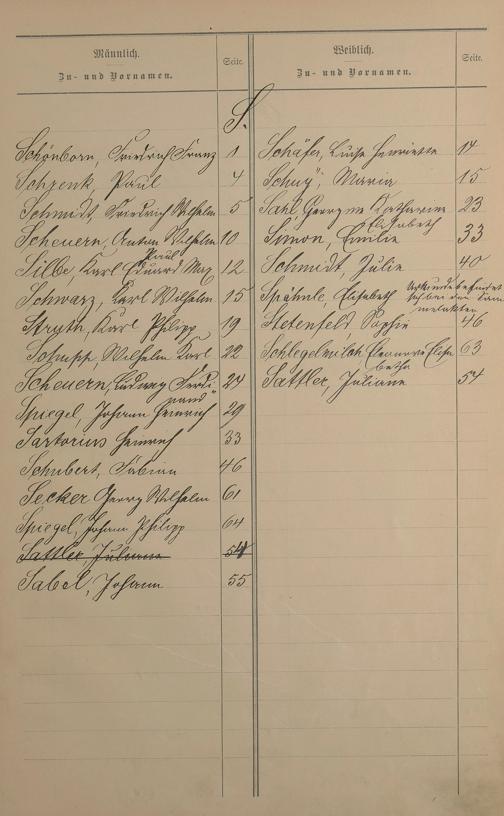 Männlich.
Zu- und Vornamen.
Seite.
Weiblich.
Zu- und Vornamen.
Seite.
S.
Schönborn, Friedrich Franz 1
Schrenk, Paul 4
Schmidt, Friedrich Wilhelm 5
Scheuern, Anton Wilhelm 10
Paul
Silbe, Karl Eduard Max 12
Schwarz, Karl Wilhelm 15
Struth, Karl Philipp 19
Schupp, Wilhelm Karl 22
Scheuern, Ludwig Ferdi- 24
nand
Spiegel, Johann Heinrich 29
Sartorius Heinrich 33
Schubert, Fabian 46
Secker Georg Wilhelm 61
Spiegel, Johann Philipp 64
Sattler, Juliane 54
Sabel, Johann 55
Schäfer, Luise Henriette 14
Maria 15
Sahl Georgine Katharine 23
Elisabeth
Simon, Emilie 33
Schmidt, Julie 40
Spähnle, Elisabeth Urkunde befindet
sich bei den Sam
melakten
Stetenfeld, Sophie 46
Schlegelmilch Eleonore Elisa 63
betha
Sattler, Juliane 54